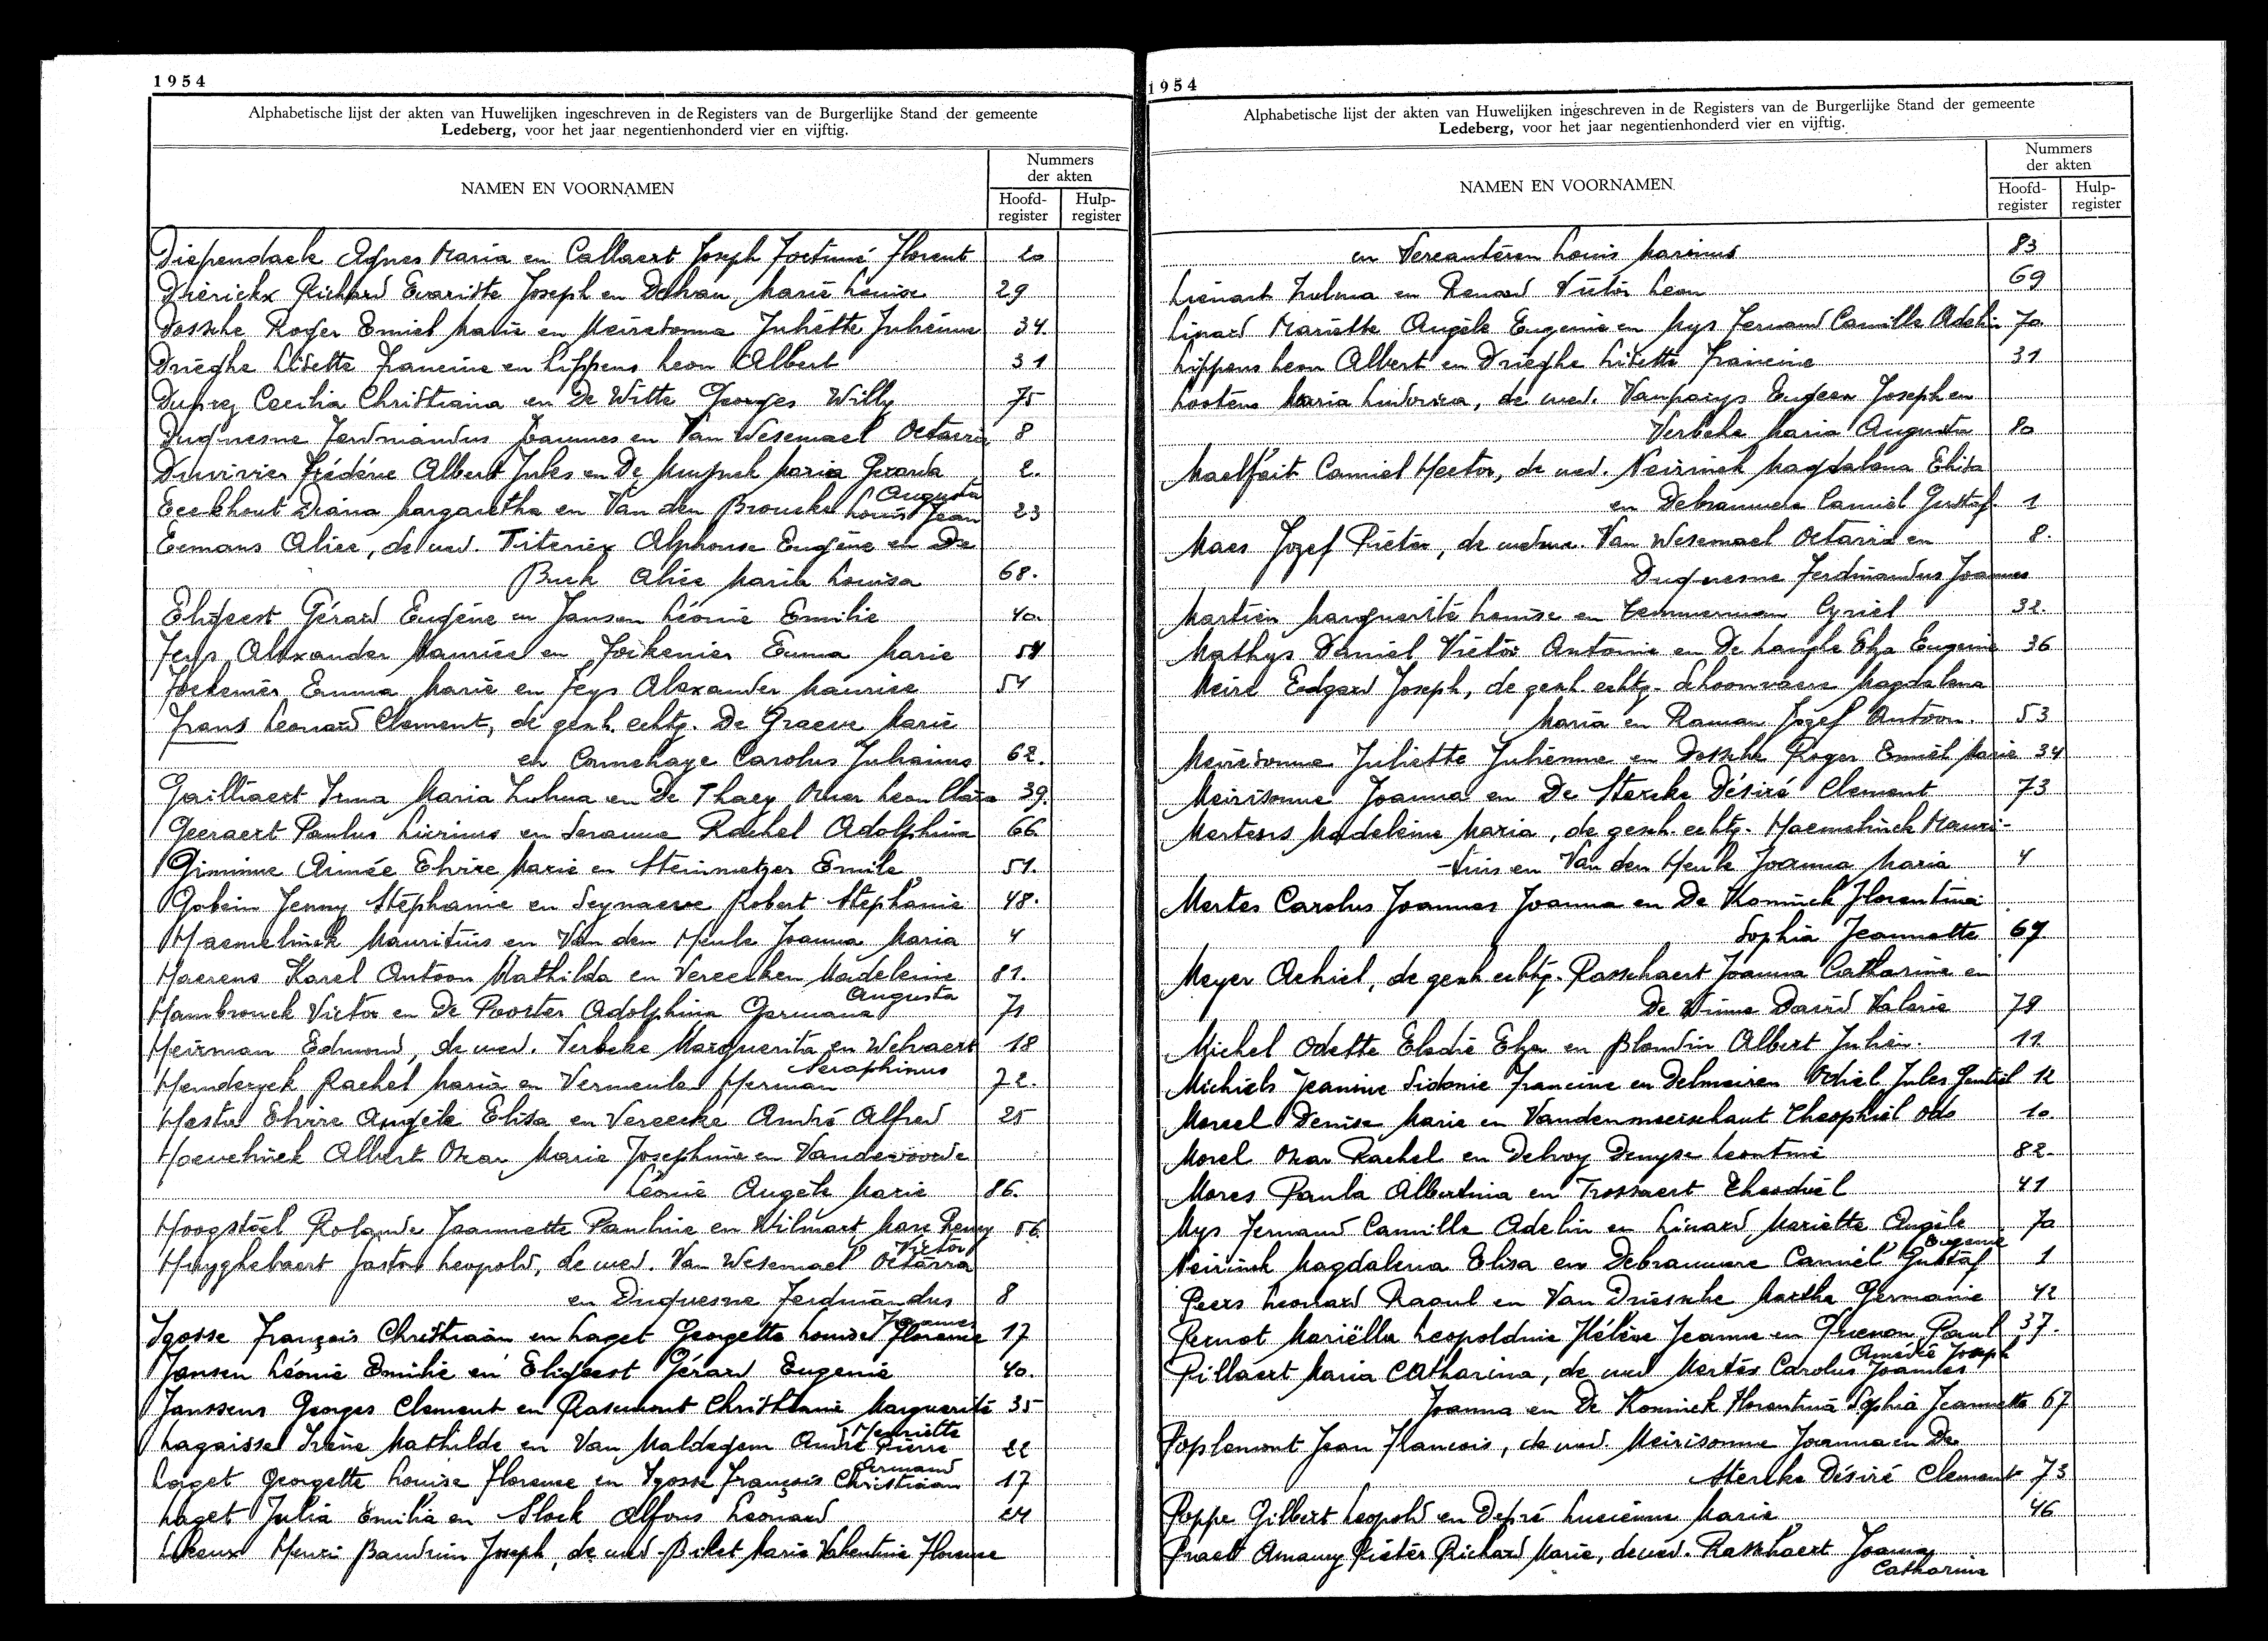 1954
Alphabetische lijst der akten van Huwelijken ingeschreven in de Registers van de Burgerlijke Stand der gemeente
Ledeberg, voor het jaar negentienhonderd vier en vijftig.
NAMEN EN VOORNAMEN
Nummers
der akten
Hoofd-
register
Hulp-
register
Diependaele Agnes Maria en Callaert Joseph Fortuné Florent 20
Dierickx Richard Evariste Joseph en Delvau Marie Louise 29
Dossche Roger Emiel Marie en Meiresonne Juliette Julienne 34
Drieghe Lisette Francine en Lippens Leon Albert 31
Duprez Cecilia Christiana en De Witte Georges Willy 75
Duquesne Ferdinandus Joannes en Van Wesemael Octavia 8
Duvivier Frédéric Albert Jules en De Muynck Maria Gerarda 2.
Augusta
Eeckhout Diana Margaretha en Van den Broucke Louis Jean 23
Eemans Alice, de wed. Titeriex Alphonse Eugène en De
Buck Alice Maria Louisa 68.
Eligeest Gérard Eugène en Jansen Léonie Emilie 40.
Feys Alexander Maurice en Foekenier Emma Marie 54
Foekenier Emma Marie en Feys Alexander Maurice 54
Frans Leonard Clement, de gesch. echtg. De Graeve Marie
en Cornehaye Carolus Julianus 62.
Gailliaert Irma Maria Zulma en De Thaey Omer Leon Clara 39.
Geeraert Paulus Livinus en Seranne Rachel Adolphina 66
Giminne Aimée Elvire Marie en Steinmetzer Emile 51.
Gobein Jenny Stéphanie en Seynaeve Robert Stephanie 48.
Haemelinck Mauritius en Van den Heule Joanna Maria 4
Haerens Karel Antoon Mathilda en Vereecken Madeleine 81.
Augusta
Hambrouck Victor en De Poorter Adolphina Germana 71
Heirman Edmond, de wed. Verbeke Marguerita en Welvaert 18
Seraphinus
Henderyck Rachel Maria en Vermeulen Herman 72.
Hestu Elvire Angèle Elisa en Vereecke André Alfred 25
Hoevelinck Albert Oscar Marie Josephine en Vandevoorde
Léonie Angèle Marie 86.
Hoogstoel Rolande Jeannette Pauline en Wilmart Marc Remy 56.
Victor
Huyghebaert Gaston Leopold, de wed. Van Wesemael Octavia
en Duquesne Ferdinandus 8
Joannes
Igosse François Christiaan en Laget Georgette Louise Florence 17
Jansen Léonie Emilie en Eligeest Gérard Eugenie 40.
Janssens Georges Clement en Rasemont Christiane Marguerite 35
Henriette
Lagaisse Irène Mathilde en Van Maldegem André Pierre 22
Armand
Laget Georgette Louise Florence en Igosse François Christiaan 17
Laget Julia Emilia en Slock Alfons Leonard 24
Lekeux Henri Baudouin Joseph, de wed. Bilet Marie Valentine Florence
1954
Alphabetische lijst der akten van Huwelijken ingeschreven in de Registers van de Burgerlijke Stand der gemeente
Ledeberg, voor het jaar negentienhonderd vier en vijftig.
NAMEN EN VOORNAMEN
Nummers
der akten
Hoofd-
register
Hulp-
register
en Vercauteren Louis Marinus 83
Liénart Zulma en Renard Victor Leon 69
Linard Mariette Angèle Eugenie en Mys Fernand Camille Adelin 70
Lippens Leon Albert en Drieghe Lisette Francine 31
Lootens Maria Ludovica, de wed. Vanparys Eugeen Joseph en
Verbeke Maria Augusta 80
Maelfait Camiel Hector, de wed. Neirinck Magdalena Elisa
en Debrauwere Camiel Gustaf. 1
Maes Jozef Pieter, de weduw. Van Wesemael Octavia en 8.
Duquesne Ferdinandus Joannes
Martien Marguerite Louise en Temmerman Cyriel 32.
Mathys Daniel Victor Antoine en De Langhe Elza Eugenie 36
Meire Edgard Joseph, de gesch. echtg. Schoonvaere Magdalena
Maria en Raman Jozef Antoon. 53
Meiresonne Juliette Julienne en Dossche Roger Emiel Marie 34
Meirisonne Joanna en De Stercke Désiré Clement 73
Mertens Madeleine Maria, de gesch. echtg. Haemelinck Mauri-
-tius en Van den Heule Joanna Maria 4
Mertes Carolus Joannes Joanna en De Koninck Florentina
Sophia Jeannette 67
Meyer Achiel, de gesch. echtg. Rasschaert Joanna Catharina en
De Winne David Valerie 78
Michel Odette Elodie Elza en Blondin Albert Julien. 11
Michiels Jeanine Sidonie Francine en Delmeiren Odiel Jules Gentiel 12
Moreel Denise Marie en Vandenmeerschaut Theophiel Odo 10
Morel Oscar Rachel en Delroy Denyse Leontine 82.
Mores Paula Albertina en Trossaert Theodiel 41
Mys Fernand Camille Adelin en Linard Mariette Angèle 70
Eugenie
Neirinck Magdalena Elisa en Debrauwere Camiel Gustaf 1
Peers Leonard Raoul en Van Driessche Martha Germanie 42
Pernot Mariëlla Leopoldine Hélène Jeanne en Grienon Paul 37.
Amédée Joseph
Pillaert Maria Catharina, de wed Mertes Carolus Joannes
Joanna en De Koninck Florentina Sophia Jeannette 67
Poplemont Jean Francois, de wed. Meirisonne Joanna en De
Stercke Désiré Clement 73
Poppe Gilbert Leopold en Depré Lucienne Marie 46
Praet Amaury Pieter Richard Marie, de wed. Rasschaert Joanna
Catharina